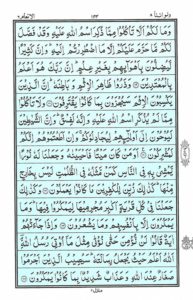 ولواننا ٨
١٤٣
الانعام ٦
وَمَا لَكُمْ اَلَّا تَاْكُلُوْا مِمَّا ذُكِرَ اسْمُ اللّٰهِ عَلَيْهِ وَقَدْ فَصَّلَ
لَكُمْ مَّا حَرَّمَ عَلَيْكُمْ اِلَّا مَا اضْطُرِرْتُمْ اِلَيْهِ وَاِنَّ كَثِيْرًا
لَّيُضِلُّوْنَ بِاَهْوَآئِهِمْ بِغَيْرِ عِلْمٍ اِنَّ رَبَّكَ هُوَ اَعْلَمُ
بِالْمُعْتَدِيْنَ وَذَرُوْا ظَاهِرَ الْاِثْمِ وَبَاطِنَهٗ اِنَّ الَّذِيْنَ
يَكْسِبُوْنَ الْاِثْمَ سَيُجْزَوْنَ بِمَا كَانُوْا يَقْتَرِفُوْنَ وَلَا تَاْكُلُوْا
مِمَّا لَمْ يُذْكَرِ اسْمُ اللّٰهِ عَلَيْهِ وَاِنَّهٗ لَفِسْقٌ وَاِنَّ الشَّيٰطِيْنَ
لَيُوْحُوْنَ اِلٰٓى اَوْلِيٰٓئِهِمْ لِيُجَادِلُوْكُمْ وَاِنْ اَطَعْتُمُوْهُمْ اِنَّكُمْ
لَمُشْرِكُوْنَ اَوَمَنْ كَانَ مَيْتًا فَاَحْيَيْنٰهُ وَجَعَلْنَا لَهٗ نُوْرًا
يَّمْشِيْ بِهٖ فِي النَّاسِ كَمَنْ مَّثَلُهٗ فِي الظُّلُمٰتِ لَيْسَ بِخَارِجٍ
مِّنْهَا كَذٰلِكَ زُيِّنَ لِلْكٰفِرِيْنَ مَا كَانُوْا يَعْمَلُوْنَ وَكَذٰلِكَ
جَعَلْنَا فِيْ كُلِّ قَرْيَةٍ اَكٰبِرَ مُجْرِمِيْهَا لِيَمْكُرُوْا فِيْهَا وَمَا
يَمْكُرُوْنَ اِلَّا بِاَنْفُسِهِمْ وَمَا يَشْعُرُوْنَ وَاِذَا جَآءَتْهُمْ
اٰيَةٌ قَالُوْا لَنْ نُّؤْمِنَ حَتّٰى نُؤْتٰى مِثْلَ مَآ اُوْتِيَ رُسُلُ اللّٰهِ
اَللّٰهُ اَعْلَمُ حَيْثُ يَجْعَلُ رِسَالَتَهٗ سَيُصِيْبُ الَّذِيْنَ اَجْرَمُوْا
صَغَارٌ عِنْدَ اللّٰهِ وَعَذَابٌ شَدِيْدٌۢ بِمَا كَانُوْا يَمْكُرُوْنَ
منزل ٢